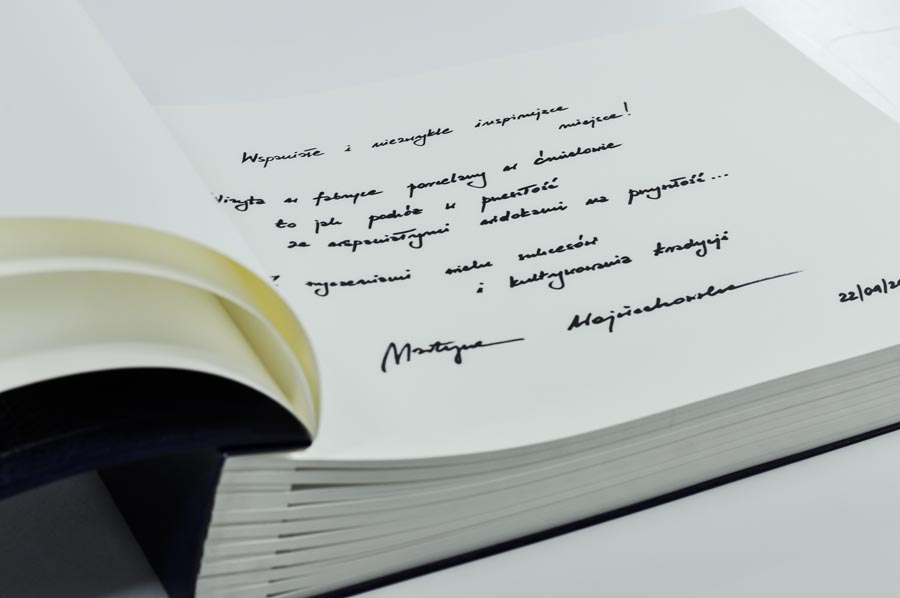 Wspaniałe i niezwykle inspirujące
miejsce!
Wizyta w fabryce porcelany w Ćmielowie
to jak podróż w przeszłość
ze wspaniałymi widokami na przyszłość...
Z życzeniami wielu sukcesów
i kultywowania tradycji
Martyna Wojciechowska
22/09/20